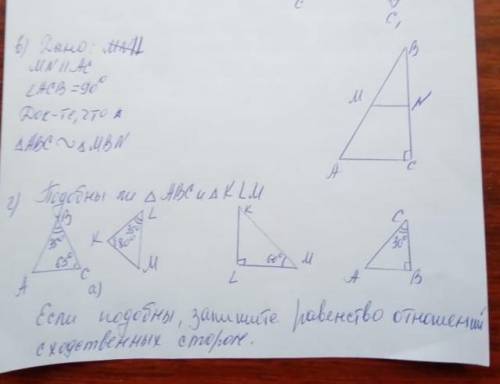 C
C₁
в) Дано:
MN || AC
∠ACB = 90°
Док-те, что
△ABC ~ △MBN
B
M
N
A
C
г) Подобны ли △ABC и △KLM
B
35°
65°
A
C
а)
L
35°
K
80°
M
K
60°
L
M
C
30°
A
B
Если подобны, запишите равенство отношений
сходственных сторон.